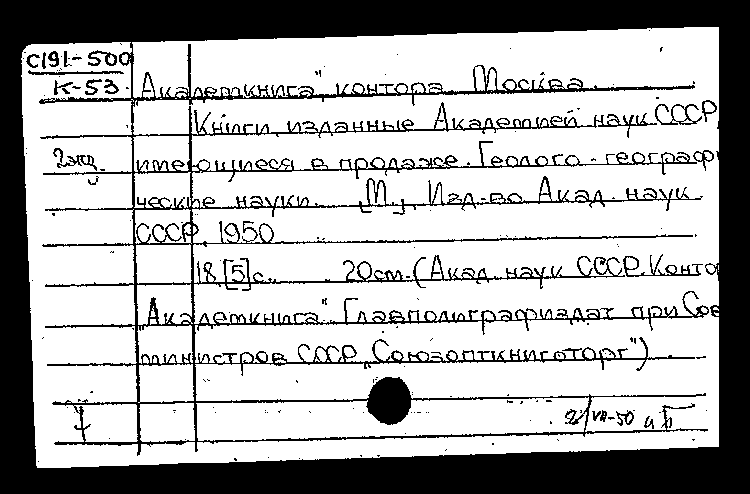 С191-500
К-53
„Академкнига", контора. Москва.
Книги, изданные Академией наук СССР,
2экз.
имеющиеся в продаже. Геолого-географи
ческие науки. [М.], Изд-во Акад. наук
СССР, 1950
18,[5]с. 20см. (Акад. наук СССР. Конто
„Академкнига". Главполиграфиздат при Сов
министров СССР „Союзопткниготорг")
VII-50